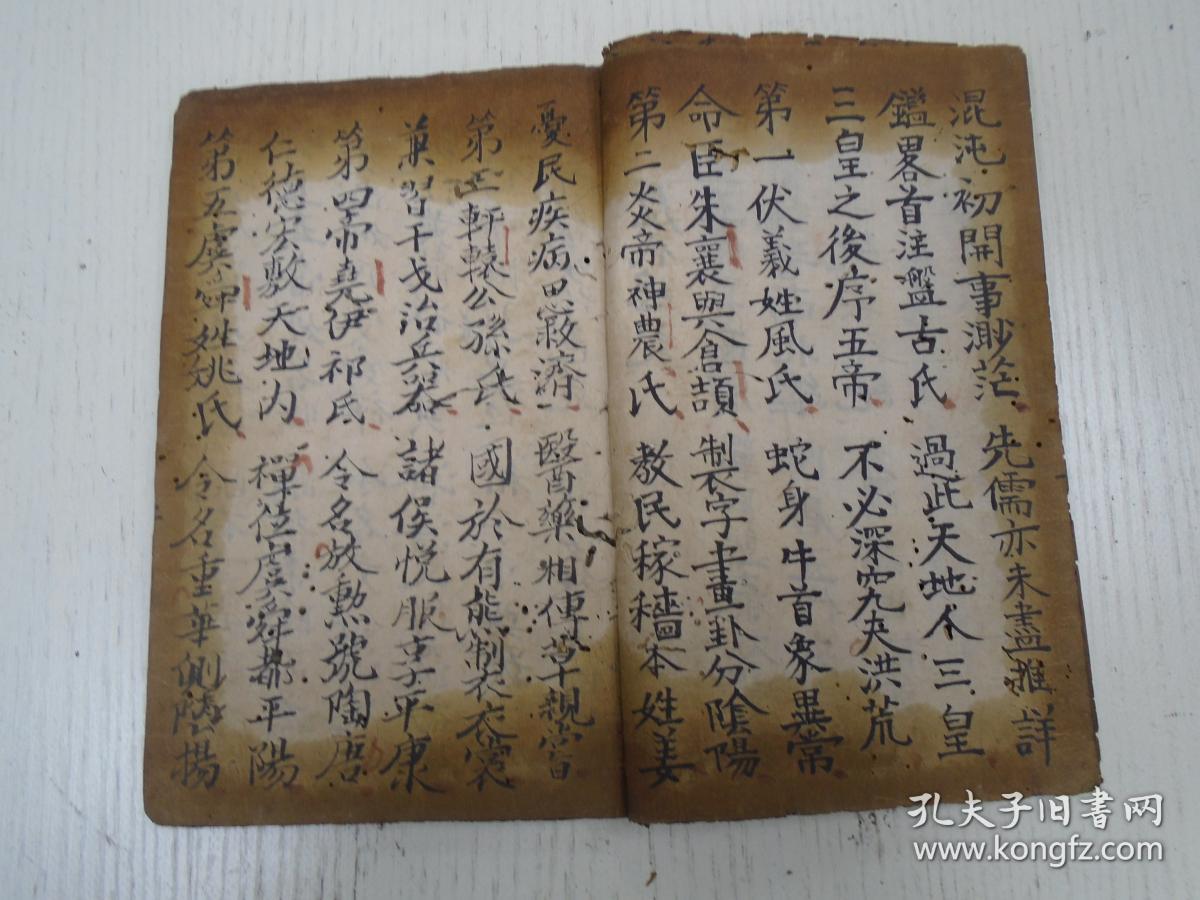 混沌初開事渺茫 先儒亦未盡推詳
鑑畧首注盤古氏 過此天地人三皇
三皇之後序五帝 不必深究夫洪荒
第一伏羲姓風氏 蛇身牛首象異常
命臣朱襄與倉頡 制字畫卦分陰陽
第二炎帝神農氏 教民稼穡本姓姜
憂民疾病思救濟 醫藥相傳草親嘗
第三軒轅公孫氏 國於有熊制衣裳
兼習干戈治兵器 諸侯悅服享平康
第四帝堯伊祁氏 令名放勳號陶唐
仁德灾敷天地内 禪位虞舜都平陽
第五虞舜姓姚氏 令名重華側陋揚
孔夫子旧书网
www.kongfz.com